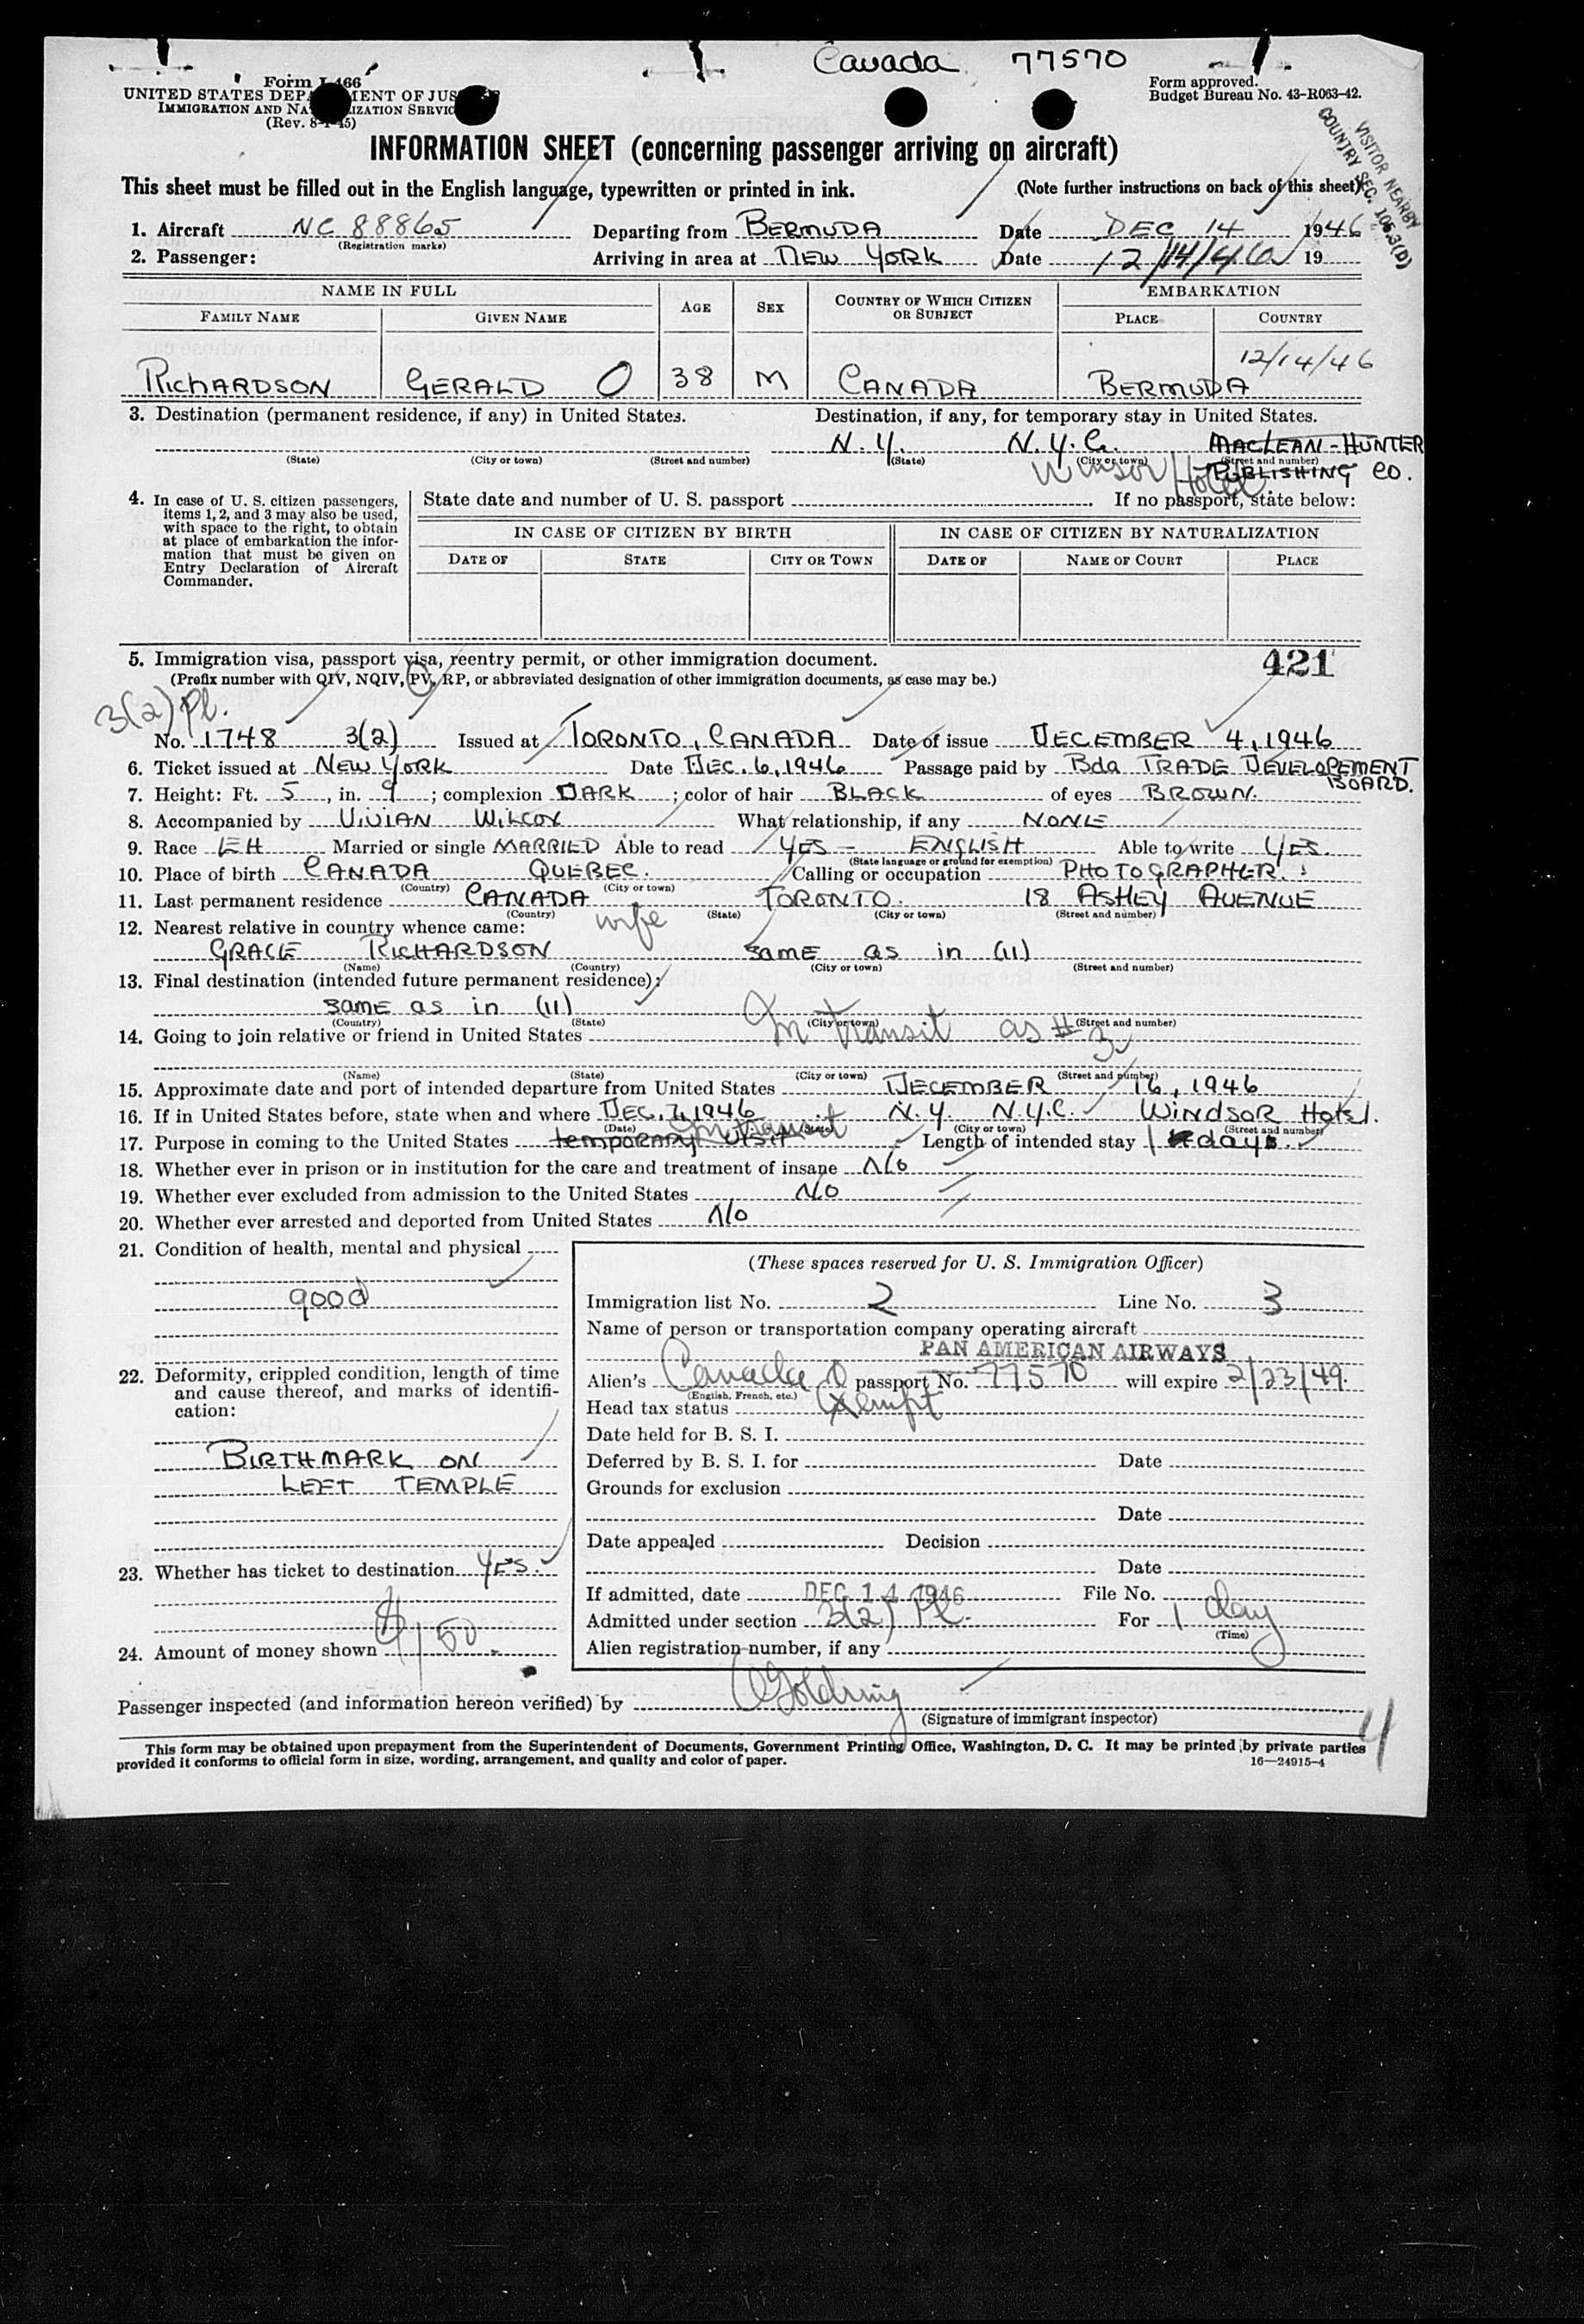 Canada 77570
Form I-466
UNITED STATES DEPARTMENT OF JUSTICE
IMMIGRATION AND NATURALIZATION SERVICE
(Rev. 8-1-45)
Form approved.
Budget Bureau No. 43-R063-42.
VISITOR NEARBY
COUNTRY SEC. 105.3(D)
INFORMATION SHEET (concerning passenger arriving on aircraft)
This sheet must be filled out in the English language, typewritten or printed in ink. (Note further instructions on back of this sheet)
1. Aircraft NC 88865 Departing from BERMUDA Date DEC 14 1946
(Registration marks)
2. Passenger: Arriving in area at NEW YORK Date 12/14/46 19
NAME IN FULL AGE SEX COUNTRY OF WHICH CITIZEN OR SUBJECT EMBARKATION
FAMILY NAME GIVEN NAME PLACE COUNTRY
12/14/46
RICHARDSON GERALD O 38 M CANADA BERMUDA
3. Destination (permanent residence, if any) in United States. Destination, if any, for temporary stay in United States.
N.Y. N.Y.C. MACLEAN-HUNTER
(State) (City or town) (Street and number) (State) (City or town) (Street and number)
Winsor Hotel PUBLISHING CO.
4. In case of U. S. citizen passengers, items 1, 2, and 3 may also be used, with space to the right, to obtain at place of embarkation the information that must be given on Entry Declaration of Aircraft Commander.
State date and number of U. S. passport If no passport, state below:
IN CASE OF CITIZEN BY BIRTH IN CASE OF CITIZEN BY NATURALIZATION
DATE OF STATE CITY OR TOWN DATE OF NAME OF COURT PLACE
5. Immigration visa, passport visa, reentry permit, or other immigration document. 421
(Prefix number with QIV, NQIV, PV, RP, or abbreviated designation of other immigration documents, as case may be.)
3(2) Pl.
No. 1748 3(2) Issued at TORONTO, CANADA Date of issue DECEMBER 4, 1946
6. Ticket issued at NEW YORK Date DEC. 6, 1946 Passage paid by Bda TRADE DEVELOPEMENT
BOARD.
7. Height: Ft. 5, in. 9; complexion DARK; color of hair BLACK of eyes BROWN.
8. Accompanied by VIVIAN WILCOX What relationship, if any NONE
9. Race EH Married or single MARRIED Able to read YES - ENGLISH Able to write YES.
(State language or ground for exemption)
10. Place of birth CANADA QUEBEC. Calling or occupation PHOTOGRAPHER.
(Country) (City or town)
11. Last permanent residence CANADA TORONTO. 18 ASHLEY AVENUE
(Country) (State) (City or town) (Street and number)
12. Nearest relative in country whence came: wife
GRACE RICHARDSON same as in (11)
(Name) (Country) (City or town) (Street and number)
13. Final destination (intended future permanent residence):
same as in (11)
(Country) (State) (City or town) (Street and number)
14. Going to join relative or friend in United States In transit as # 3
(Name) (State) (City or town) (Street and number)
15. Approximate date and port of intended departure from United States DECEMBER 16, 1946
16. If in United States before, state when and where DEC. 7, 1946 N.Y. N.Y.C. WINDSOR Hotel.
(Date) (State) (City or town) (Street and number)
17. Purpose in coming to the United States temporary visit In Transit Length of intended stay 1 days.
18. Whether ever in prison or in institution for the care and treatment of insane No
19. Whether ever excluded from admission to the United States No
20. Whether ever arrested and deported from United States No
21. Condition of health, mental and physical
good
22. Deformity, crippled condition, length of time and cause thereof, and marks of identification:
BIRTHMARK ON
LEFT TEMPLE
23. Whether has ticket to destination YES.
24. Amount of money shown $150.
(These spaces reserved for U. S. Immigration Officer)
Immigration list No. 2 Line No. 3
Name of person or transportation company operating aircraft
PAN AMERICAN AIRWAYS
Alien's Canada passport No. 77570 will expire 2/23/49.
(English, French, etc.)
Head tax status Exempt
Date held for B. S. I.
Deferred by B. S. I. for Date
Grounds for exclusion
Date
Date appealed Decision
Date
If admitted, date DEC 14 1946 File No.
Admitted under section 3(2) Pl. For 1 day
(Time)
Alien registration number, if any
Passenger inspected (and information hereon verified) by Goldring
(Signature of immigrant inspector)
4
This form may be obtained upon prepayment from the Superintendent of Documents, Government Printing Office, Washington, D. C. It may be printed by private parties
provided it conforms to official form in size, wording, arrangement, and quality and color of paper. 16—24915-4